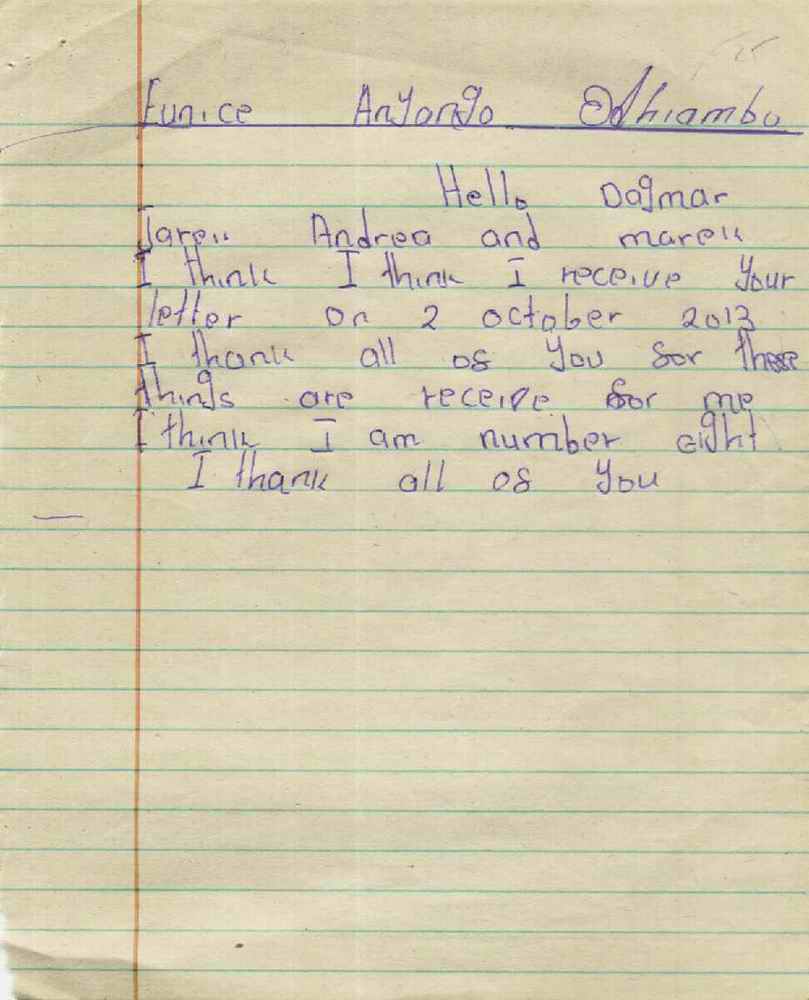 Eunice Anyango Odhiambo
Hello Dagmar
Jarek Andrea and marek
I think I think I receive your
letter on 2 october 2013
I thank all of you for these
things are receive for me
I think I am number eight
I thank all of you